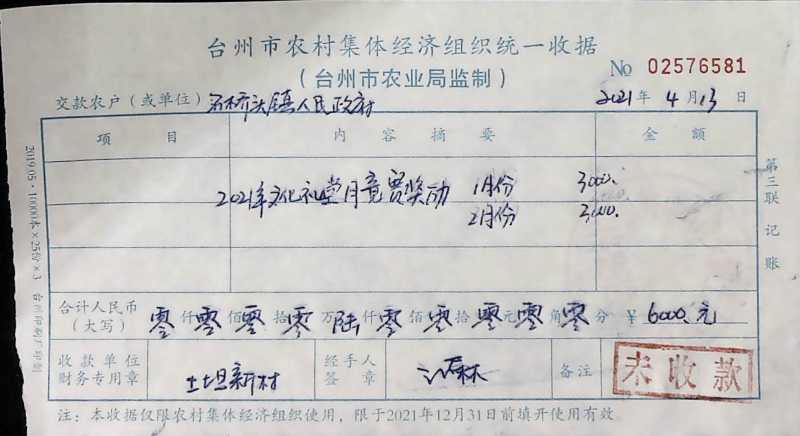 台州市农村集体经济组织统一收据
（台州市农业局监制） № 02576581
交款农户（或单位） 石桥头镇人民政府 2021年 4月13日
项目 内容摘要 金额
2021年文化礼堂月竟赛奖励 1月份 3000.
2月份 3000.
合计人民币（大写） 零仟零佰零拾零万陆仟零佰零拾零元零角零分 ￥6000.元
收款单位财务专用章 土坦新村 经手人签章 备注 未收款
注：本收据仅限农村集体经济组织使用，限于2021年12月31日前填开使用有效
第三联 记账
2019.05·10000本×25份×3